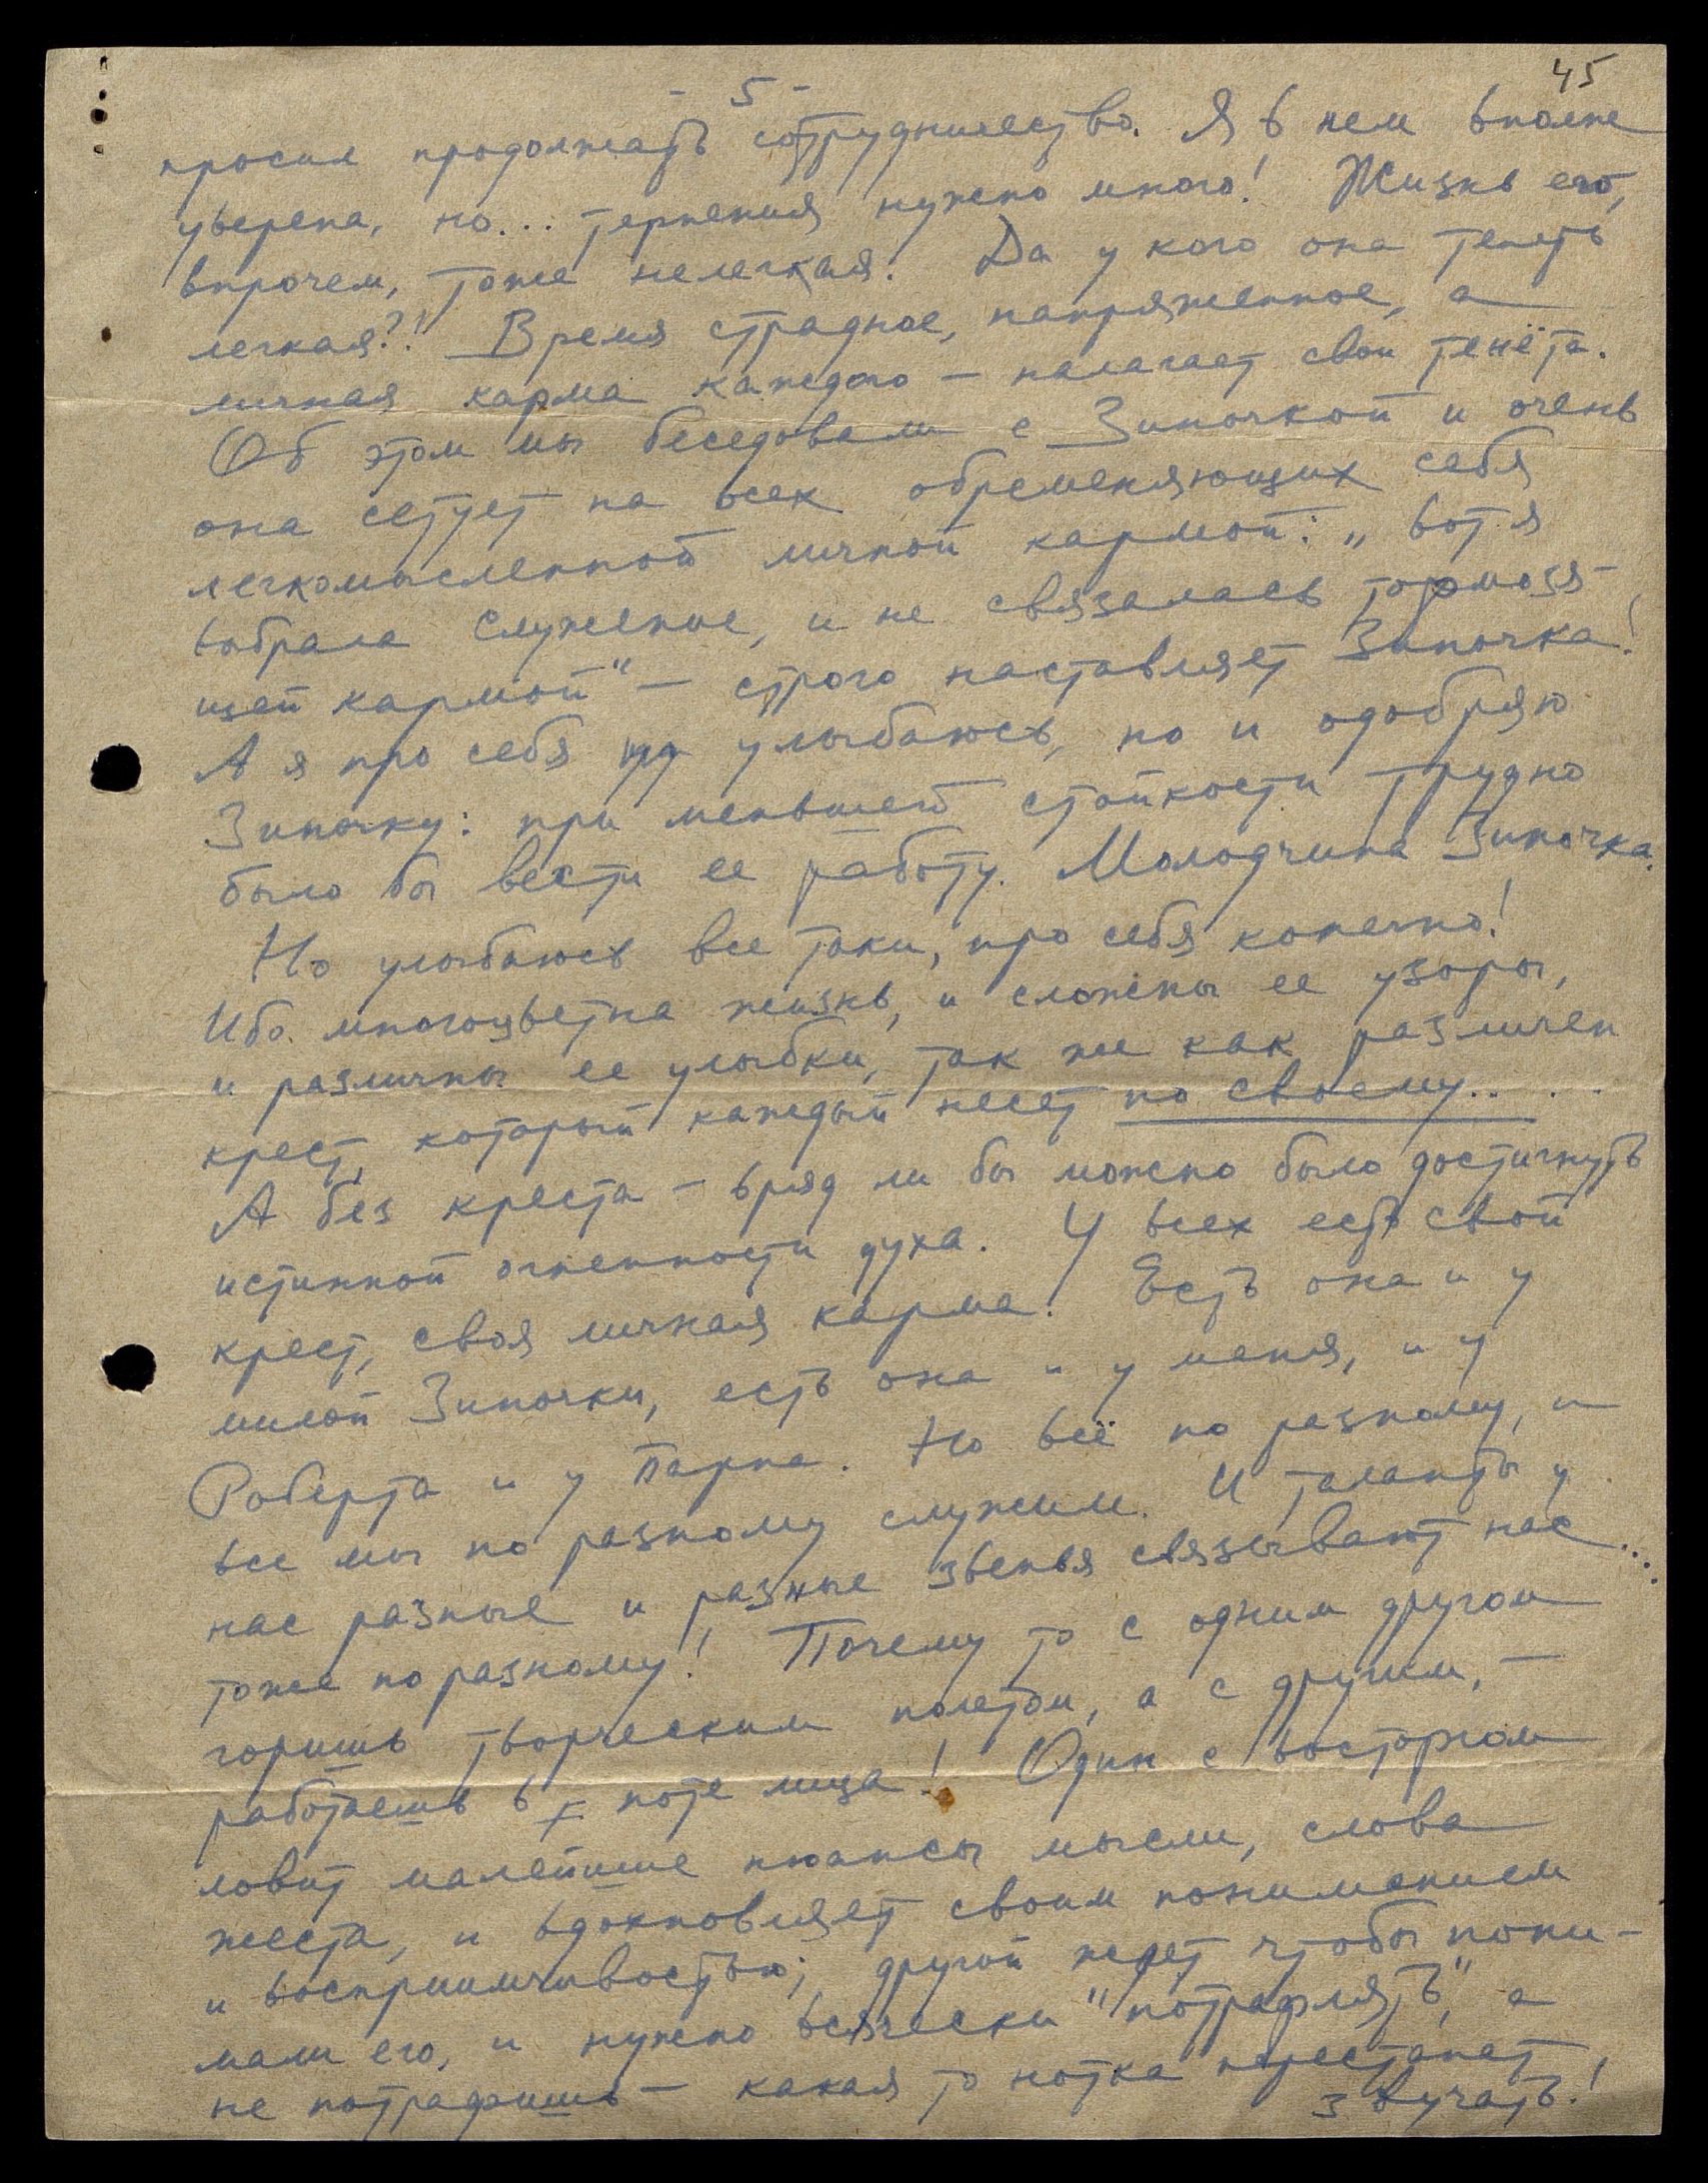 45
- 5 -
просил продолжать сотрудничество. Я в нем вполне
уверена, но... терпения нужно много! Жизнь его,
впрочем, тоже нелегкая. Да у кого она теперь
легкая?! Время страдное, напряженное, а
личная карма каждого — налагает свои тенёта.
Об этом мы беседовали с Зиночкой и очень
она сетует на всех обременяющих себя
легкомысленной личной кармой: „вот я
выбрала Служение, и не связалась тормозя-
щей кармой" — строго наставляет Зиночка!
А я про себя улыбаюсь, но и одобряю
Зиночку: при меньшей стойкости трудно
было бы вести ее работу. Молодчина Зиночка.
Но улыбаюсь все таки, про себя конечно!
Ибо многоцветна жизнь, и сложны ее узоры,
и различны ее улыбки, так же как различен
крест, который каждый несет по своему.. . .
А без креста — вряд ли бы можно было достигнуть
истинной огненности духа. У всех есть свой
крест, своя личная карма. Есть она и у
милой Зиночки, есть она и у меня, и у
Роберта и у Парна. Но всё по разному, и
все мы по разному служим. И таланты у
нас разные и разные звенья связывают нас...
тоже по разному! Почему то с одним другом
горишь творческим полетом, а с другим, —
работаешь в поте лица! Один с восторгом
ловит малейшие нюансы мысли, слова
жеста, и вдохновляет своим пониманием
и восприимчивостью; другой ждет чтобы пони-
мали его, и нужно всячески "потрафлять", а
не потрафишь — какая то нотка перестанет
звучать!